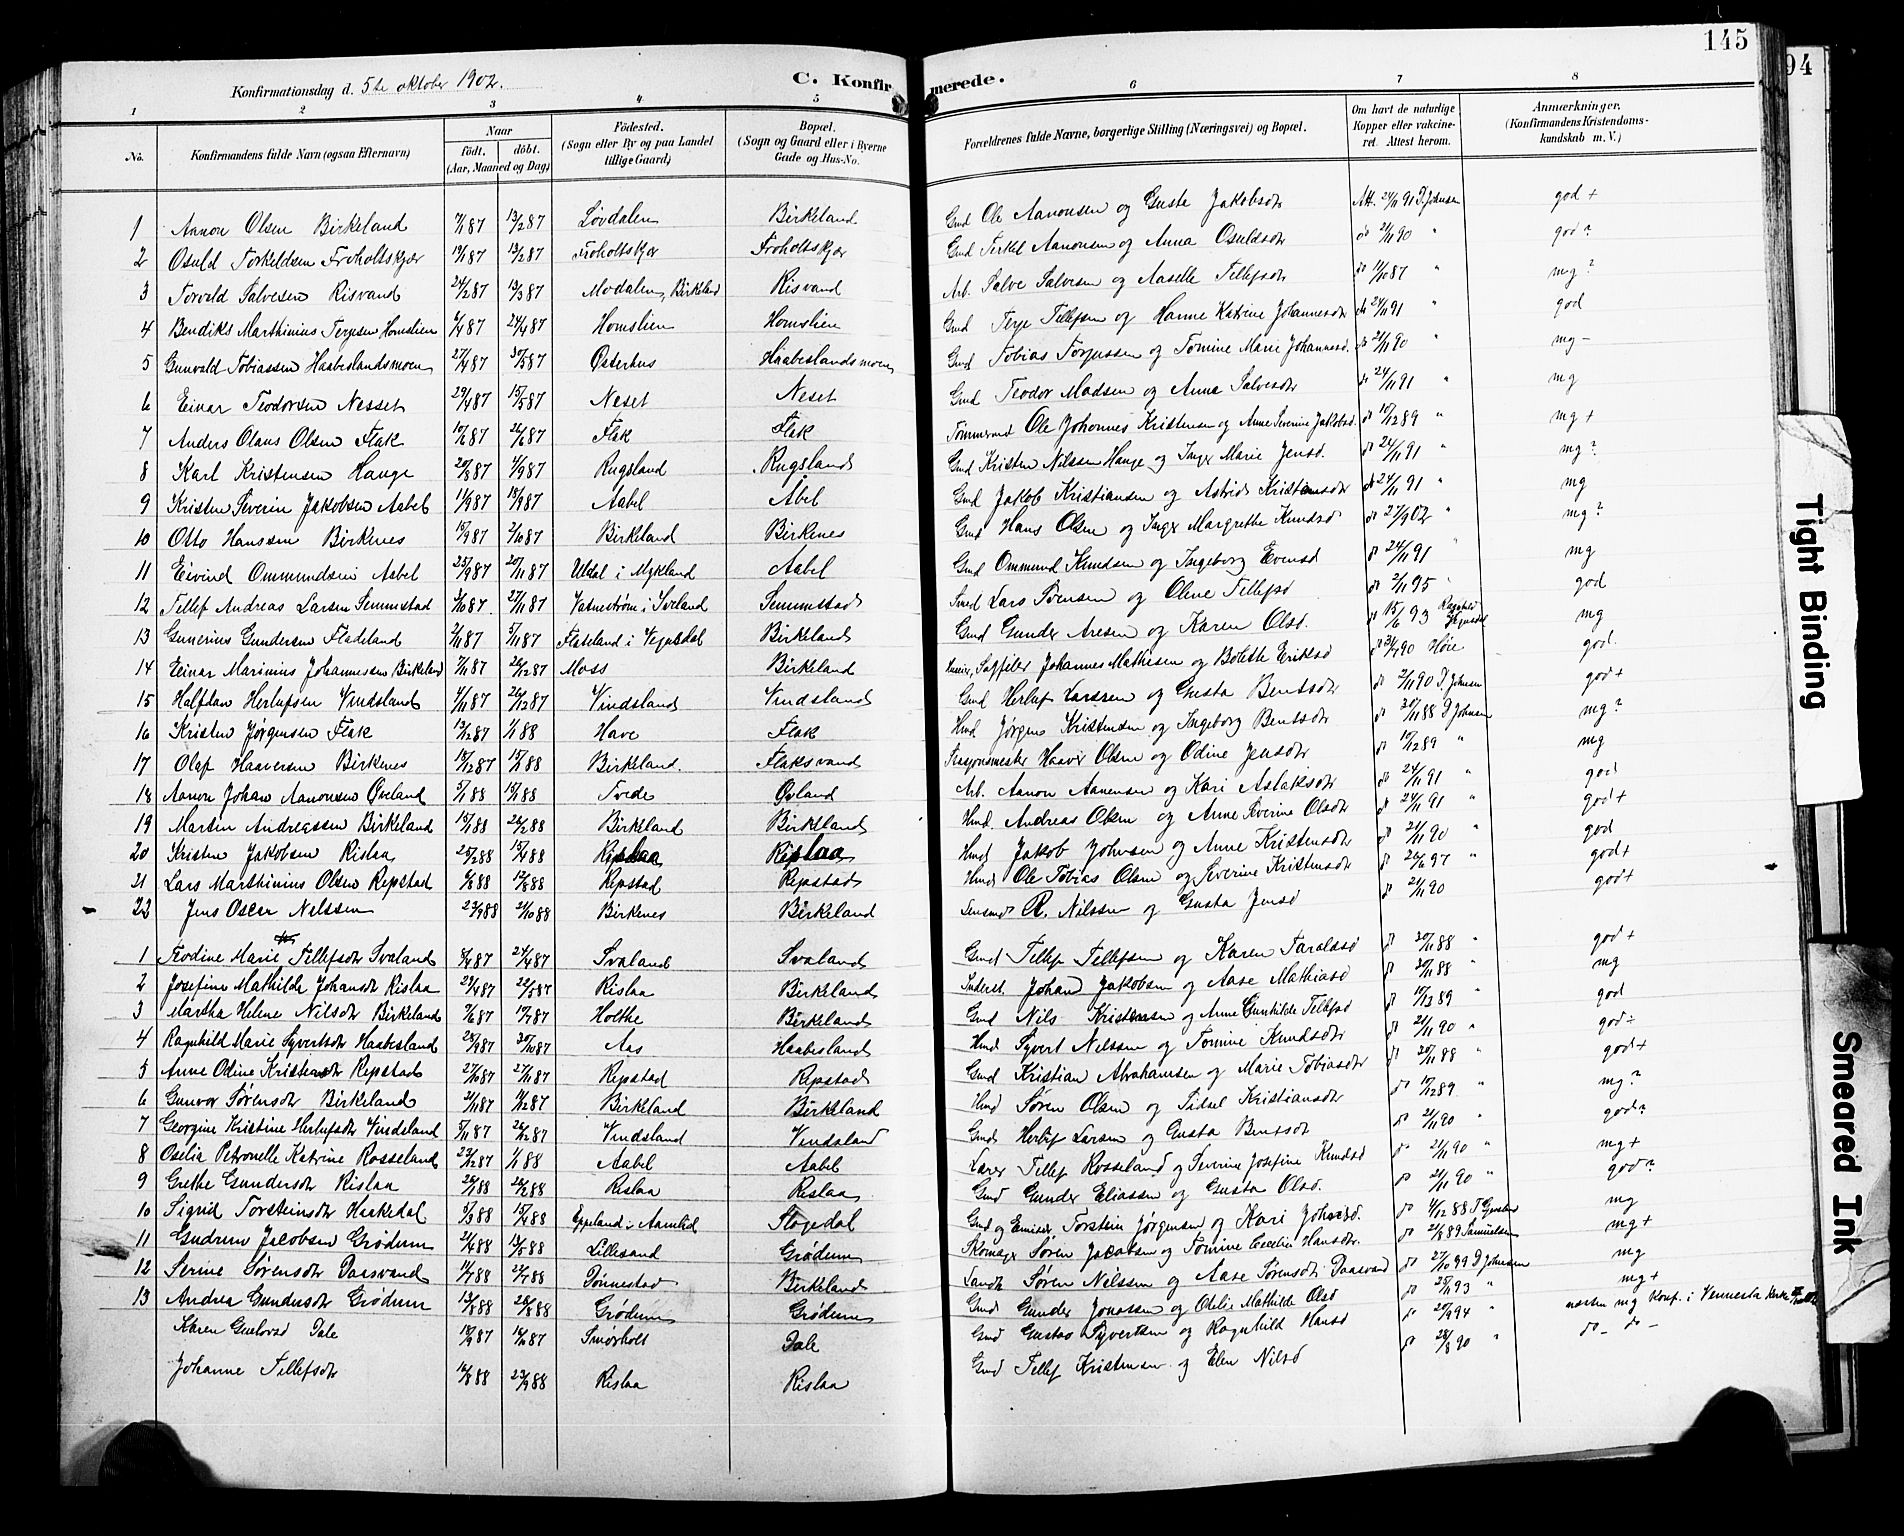 145
94
Konfirmationsdag d. 5te oktober 1902.
C. Konfirmerede.
1 2 3 4 5 6 7 8
No. Konfirmandens fulde Navn (ogsaa Efternavn) Naar födt, döbt. (Aar, Maaned og Dag) Födested. (Sogn eller By og paa Landet tillige Gaard) Bopæl. (Sogn og Gaard eller i Byerne Gade og Hus-No. Forældrenes fulde Navne, borgerlige Stilling (Næringsvei) og Bopæl. Om havt de naturlige Kopper eller vakcineret. Attest herom. Anmærkninger. (Konfirmandens Kristendomskundskab m. V.)
1 Aanon Olsen Birkeland 87 13/2 87 Løvdalen Birkeland Gmd Ole Aanonsen og Gusta Jakobsdtr Att. 24/11 91 T. Johnsen god +
2 Osuld Torkeldsen Froholtskjær 19/1 87 13/2 87 Froholtskjær Froholtskjær Gmd Terkel Aanonsen og Anna Osuldsdtr do 21/11 90 " god ?
3 Torvald Salvesen Risvand 24/2 87 13/3 87 Modalen, Birkeland Risvand Arb. Salve Salvesen og Aaselle Tellefsdtr do 11/10 87 " mg ?
4 Bendiks Marthinius Terjesen Homslien 6/4 87 24/4 87 Homslien Homslien Gmd Terje Tellefsen og Hanne Katrine Johannesdtr do 24/11 91 " god
5 Gunvald Tobiassen Haabeslandsmoen 27/4 87 30/5 87 Østerhus Haabeslandsmoen Gmd Tobias Torjussen og Tomine Marie Johannesd. do 21/11 90 " mg -
6 Einar Teodorsen Nesset 29/4 87 15/5 87 Neset Neset Gmd Teodor Madsen og Anna Salvesdtr do 24/11 91 " mg
7 Anders Olaus Olsen Flak 10/6 87 26/6 87 Flak Flak Tømmermd Ole Johannes Kristensen og Anne Severine Jakobsd. do 10/12 89 " mg +
8 Karl Kristensen Hauge 20/8 87 4/9 87 Rugsland Rugsland Gmd Kristen Nilssen Hauge og Inger Marie Jensd. do 24/11 91 " mg ?
9 Kristen Severin Jakobsen Aabel 11/9 87 18/9 87 Aabel Åbel Gmd Jakob Kristiansen og Astrid Kristensdtr do 24/11 91 " mg
10 Otto Hanssen Birkenes 15/9 87 2/10 87 Birkeland Birkenes Gmd Hans Olsen og Inger Margrethe Knudsd do 27/9 02 " mg ?
11 Eivind Ommundsen Aabel 25/9 87 20/11 87 Uldal i Mykland Aabel Gmd Ommund Knudsen og Ingeborg Evensd do 24/11 91 " mg
12 Tellef Andreas Larsen Semmstad 3/10 87 27/11 87 Vatnestrøm i Iveland Semmstad Smed Lars Svensen og Oline Tellefsd do 2/11 95 " god
13 Gunerius Gundersen Fladeland 2/11 87 5/11 87 Flateland i Vegusdal Birkeland Gmd Gunder Aresen og Karen Olsd. do 15/6 93 mg
14 Einar Marinius Johannessen Birkeland 7/11 87 26/12 87 Moss Birkeland Johannes Mathisen og Bolette Eriksd do 24/4 90 Høie god
15 Halfdan Herlufsen Vindsland 4/11 87 26/12 87 Vindsland Vindsland Gmd Herluf Larsen og Gusta Bentsdtr do 21/11 90 T. Johnsen god +
16 Kristen Jørgensen Flak 13/12 87 1/1 88 Have Flak Hmd Jørgen Kristensen og Ingeborg Bentsdtr do 20/11 88 T Johnsen mg ?
17 Olaf Haaversen Birkenes 18/12 87 15/1 88 Birkeland. Flaksvand Haaver Olsen og Odine Jensdtr do 10/12 89 " mg
18 Aanon Johan Aanonsen Øveland 5/1 88 15/1 88 Tvede Øvland Arb. Aanon Aanensen og Kari Aslaksdtr do 24/11 91 " god
19 Martin Andreassen Birkeland 15/1 88 26/2 88 Birkeland Birkeland Hmd. Andreas Olsen og Anne Severine Olsdtr do 24/11 91 " god +
20 Kristen Jakobsen Rislaa 25/2 88 15/4 88 Rislaa Rislaa Hmd Jakob Johnsen og Anne Kristensdtr do 21/11 90 " god
21 Lars Marthinius Olsen Repstad 6/8 88 12/8 88 Repstad Repstad Hmd Ole Tobias Olsen og Severine Kristensdtr do 26/6 97 " god +
22 Jens Oscar Nilssen 23/9 88 21/10 88 Birkenes Birkeland Lensmd R. Nilssen og Gusta Jensd do 21/11 90 god +
1 Teodine Marie Tellefsdtr Svaland 8/4 87 24/4 87 Svaland Svaland Gmd Tellef Tellefsen og Karen Taraldsd do 20/11 88 " god +
2 Josefine Mathilde Johansdtr Rislaa 29/4 87 22/5 87 Rislaa Birkeland Inderst. Johan Jakobsen og Aase Mathiasd do 20/11 88 " mg
3 Martha Helene Nilsdtr Birkeland 7/6 87 17/7 87 Holthe Birkeland Gmd Nils Kristensen og Anne Gunhilde Tellefsd do 10/13 89 " god
4 Ragnhild Marie Syvertsdtr Haabesland 28/9 87 30/10 87 Aas Haabesland Hmd Syvert Nilssen og Tomine Knudsdtr do 21/11 90 " god ÷
5 Anne Odine Kristensdtr Repstad 27/10 87 27/11 87 Repstad Repstad Gmd Kristian Abrahamsen og Marie Tobiasdtr do 20/11 88 " god +
6 Gunvor Sørensdtr Birkeland 21/11 87 11/12 87 Birkeland Birkeland Hmd Søren Olsen og Sidsel Kristiansdtr do 10/12 89 " mg ?
7 Georgine Kristine Herlufsdtr Vindsland 5/11 87 26/12 87 Vindsland Vindsland Gmd Herluf Larsen og Gusta Bentsdtr do 21/11 90 " god ?
8 Oselia Petronelle Katrine Rosseland 22/12 87 1/1 88 Aabel Aabel Lærer Tellef Rosseland og Severine Josefine Knudsd do 21/11 90 " mg +
9 Grethe Gundersdtr Rislaa 26/1 88 26/2 88 Rislaa Rislaa Gmd Gunder Eliassen og Gusta Olsd. do 21/11 90 " god ?
10 Sigrid Torsteinsdtr Haakedal 5/3 88 15/4 88 Eppeland i Aamlid Flogedal Gmd og Torstein Jørgensen og Kari Johnsd. do 4/12 88 mg
11 Gudrun Jacobsen Grødum 21/4 88 13/5 88 Lillesand Grødum Skomager Søren Jacobsen og Tomine Cecelie Hansdtr. do 21/8 89 Samuelsen mg +
12 Serine Sørensdtr Daasvand 11/7 88 22/7 88 Tønnestad Birkeland Landh. Søren Nilssen og Aase Sørensdtr Daasvand do 27/10 99 T Johnsen mg
13 Andrea Gundersdtr Grødum 13/8 88 26/8 88 Grødum Grødum Gmd Gunder Jonassen og Odelie Mathilde Olsd do 25/11 93 " mg +
Karen Gustavsd Dale 18/9 87 87 Smørholt Dale Gmd Gustav Syvertsen og Ragnhild Hansd do 20/9 94 " næsten mg Konf. i Vennesla Kirke
Johanne Tellefsdtr 16/8 88 23/9 88 Rislaa Rislaa Gmd Tellef Kristensen og Elen Nilsd do 28/8 90 " do - do -
Tight Binding
Smeared Ink